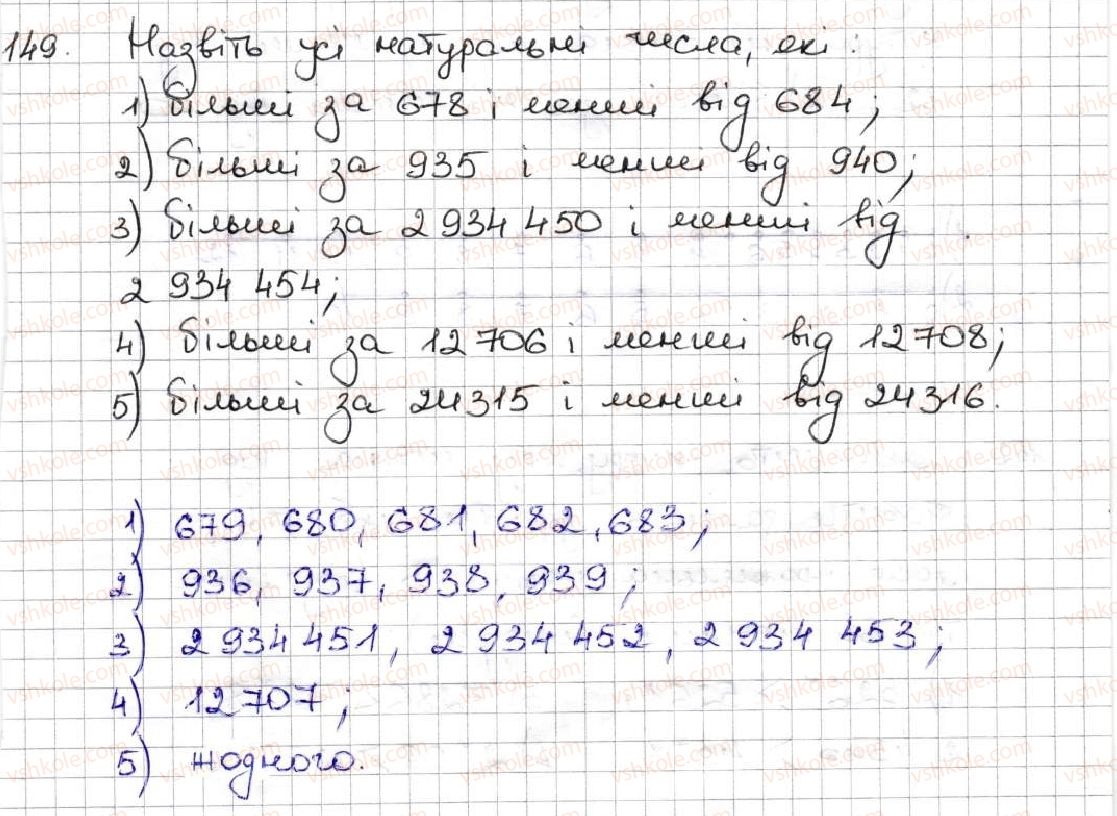 149. Назвіть усі натуральні числа, які:
1) більші за 678 і менші від 684;
2) більші за 935 і менші від 940;
3) більші за 2 934 450 і менші від
2 934 454;
4) більші за 12 706 і менші від 12 708;
5) більші за 24 315 і менші від 24 316.
1) 679, 680, 681, 682, 683;
2) 936, 937, 938, 939;
3) 2 934 451, 2 934 452, 2 934 453;
4) 12 707;
5) жодного.